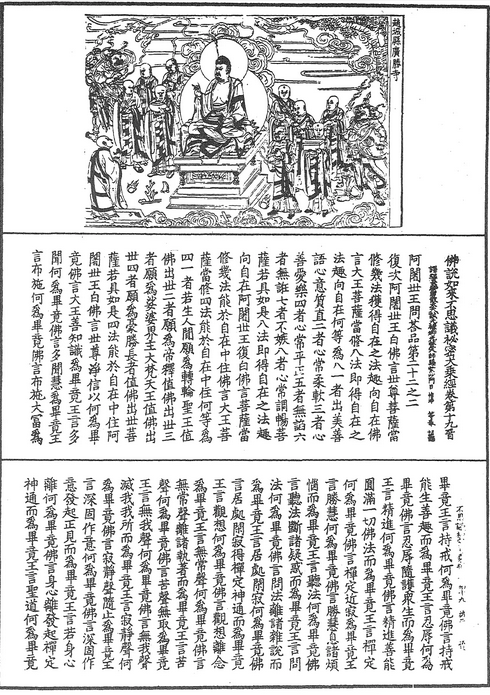 趙城縣廣勝寺
佛說如來不思議秘密大乘經卷第十九 晉
阿闍世王問荅品第二十二之二
復次阿闍世王白佛言世尊菩薩當
修幾法獲得自在之法趣向自在佛
言大王菩薩當修八法即得自在之
法趣向自在何等為八一者出美善
語心意質直二者心常柔軟三者心
善愛樂四者心常平正五者無諂六
者無誑七者不嫉八者心常調暢菩
薩若具如是八法即得自在之法趣
向自在阿闍世王復白佛言菩薩當
修幾法能於自在中住佛言大王菩
薩當修四法能於自在中住何等為
四一者若生人間願為轉輪聖王值
佛出世二者願為帝釋值佛出世三
者願為娑婆界主大梵天王值佛出
世四者願為豪勝長者值佛出世菩
薩若具如是四法能於自在中住阿
闍世王白佛言世尊淨信以何為畢
竟佛言大王善知識為畢竟王言多
聞何為畢竟佛言多聞慧為畢竟王
言布施何為畢竟佛言布施大富為
畢竟王言持戒何為畢竟佛言持戒
能生善趣而為畢竟王言忍辱何為
畢竟佛言忍辱隨護眾生而為畢竟
王言精進何為畢竟佛言精進善能
圓滿一切佛法而為畢竟王言禪定
何為畢竟佛言禪定近寂為畢竟王
言勝慧何為畢竟佛言勝慧息諸煩
惱而為畢竟王言聽法何為畢竟佛
言聽法斷諸疑惑而為畢竟王言問
法何為畢竟佛言問法離諸雜說而
為畢竟王言居處閑寂何為畢竟佛
言居處閑寂得禪定神通而為畢竟
王言觀想何為畢竟佛言觀想離念
為畢竟王言無常聲何為畢竟佛言
無常聲離諸執著而為畢竟王言苦
聲何為畢竟佛言苦聲無取為畢竟
王言無我聲何為畢竟佛言無我聲
滅我我所而為畢竟王言寂靜聲何
為畢竟佛言寂靜聲隨止為畢竟王
言深固作意何為畢竟佛言深固作
意發起正見而為畢竟王言若身心
離何為畢竟佛言身心離發起禪定
神通而為畢竟王言聖道何為畢竟